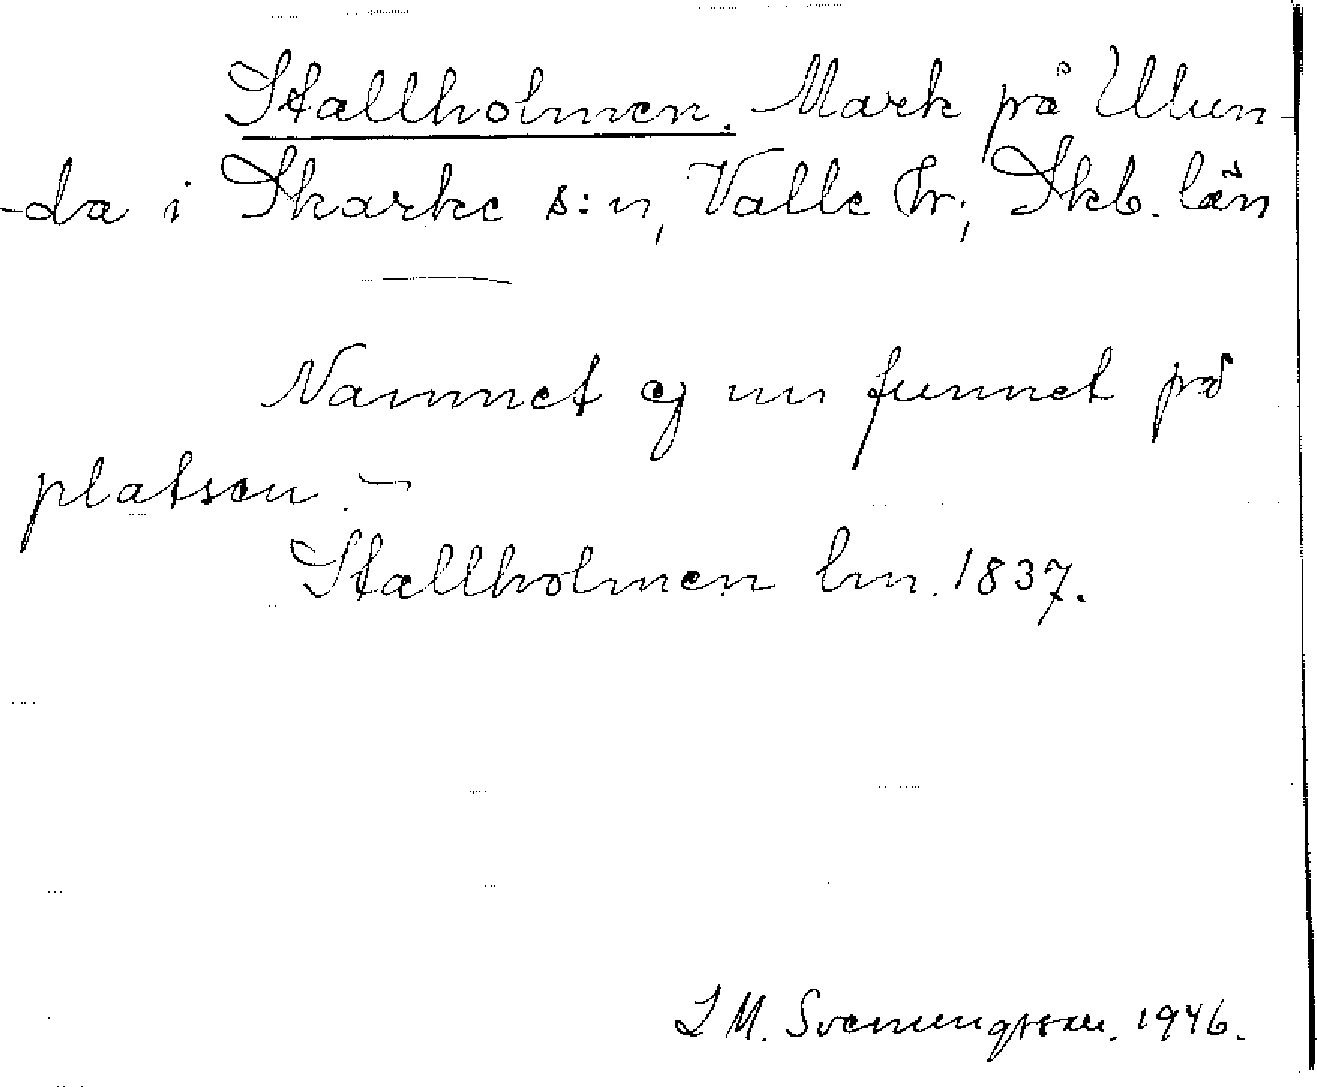 Stallholmen. Mark på Ulun-
-da i Skarke s:n, Valle hr, Skb. län
Namnet ej nu funnet på
platsen. –
Stallholmen lm. 1837.
S M. Svenungsson. 1946.